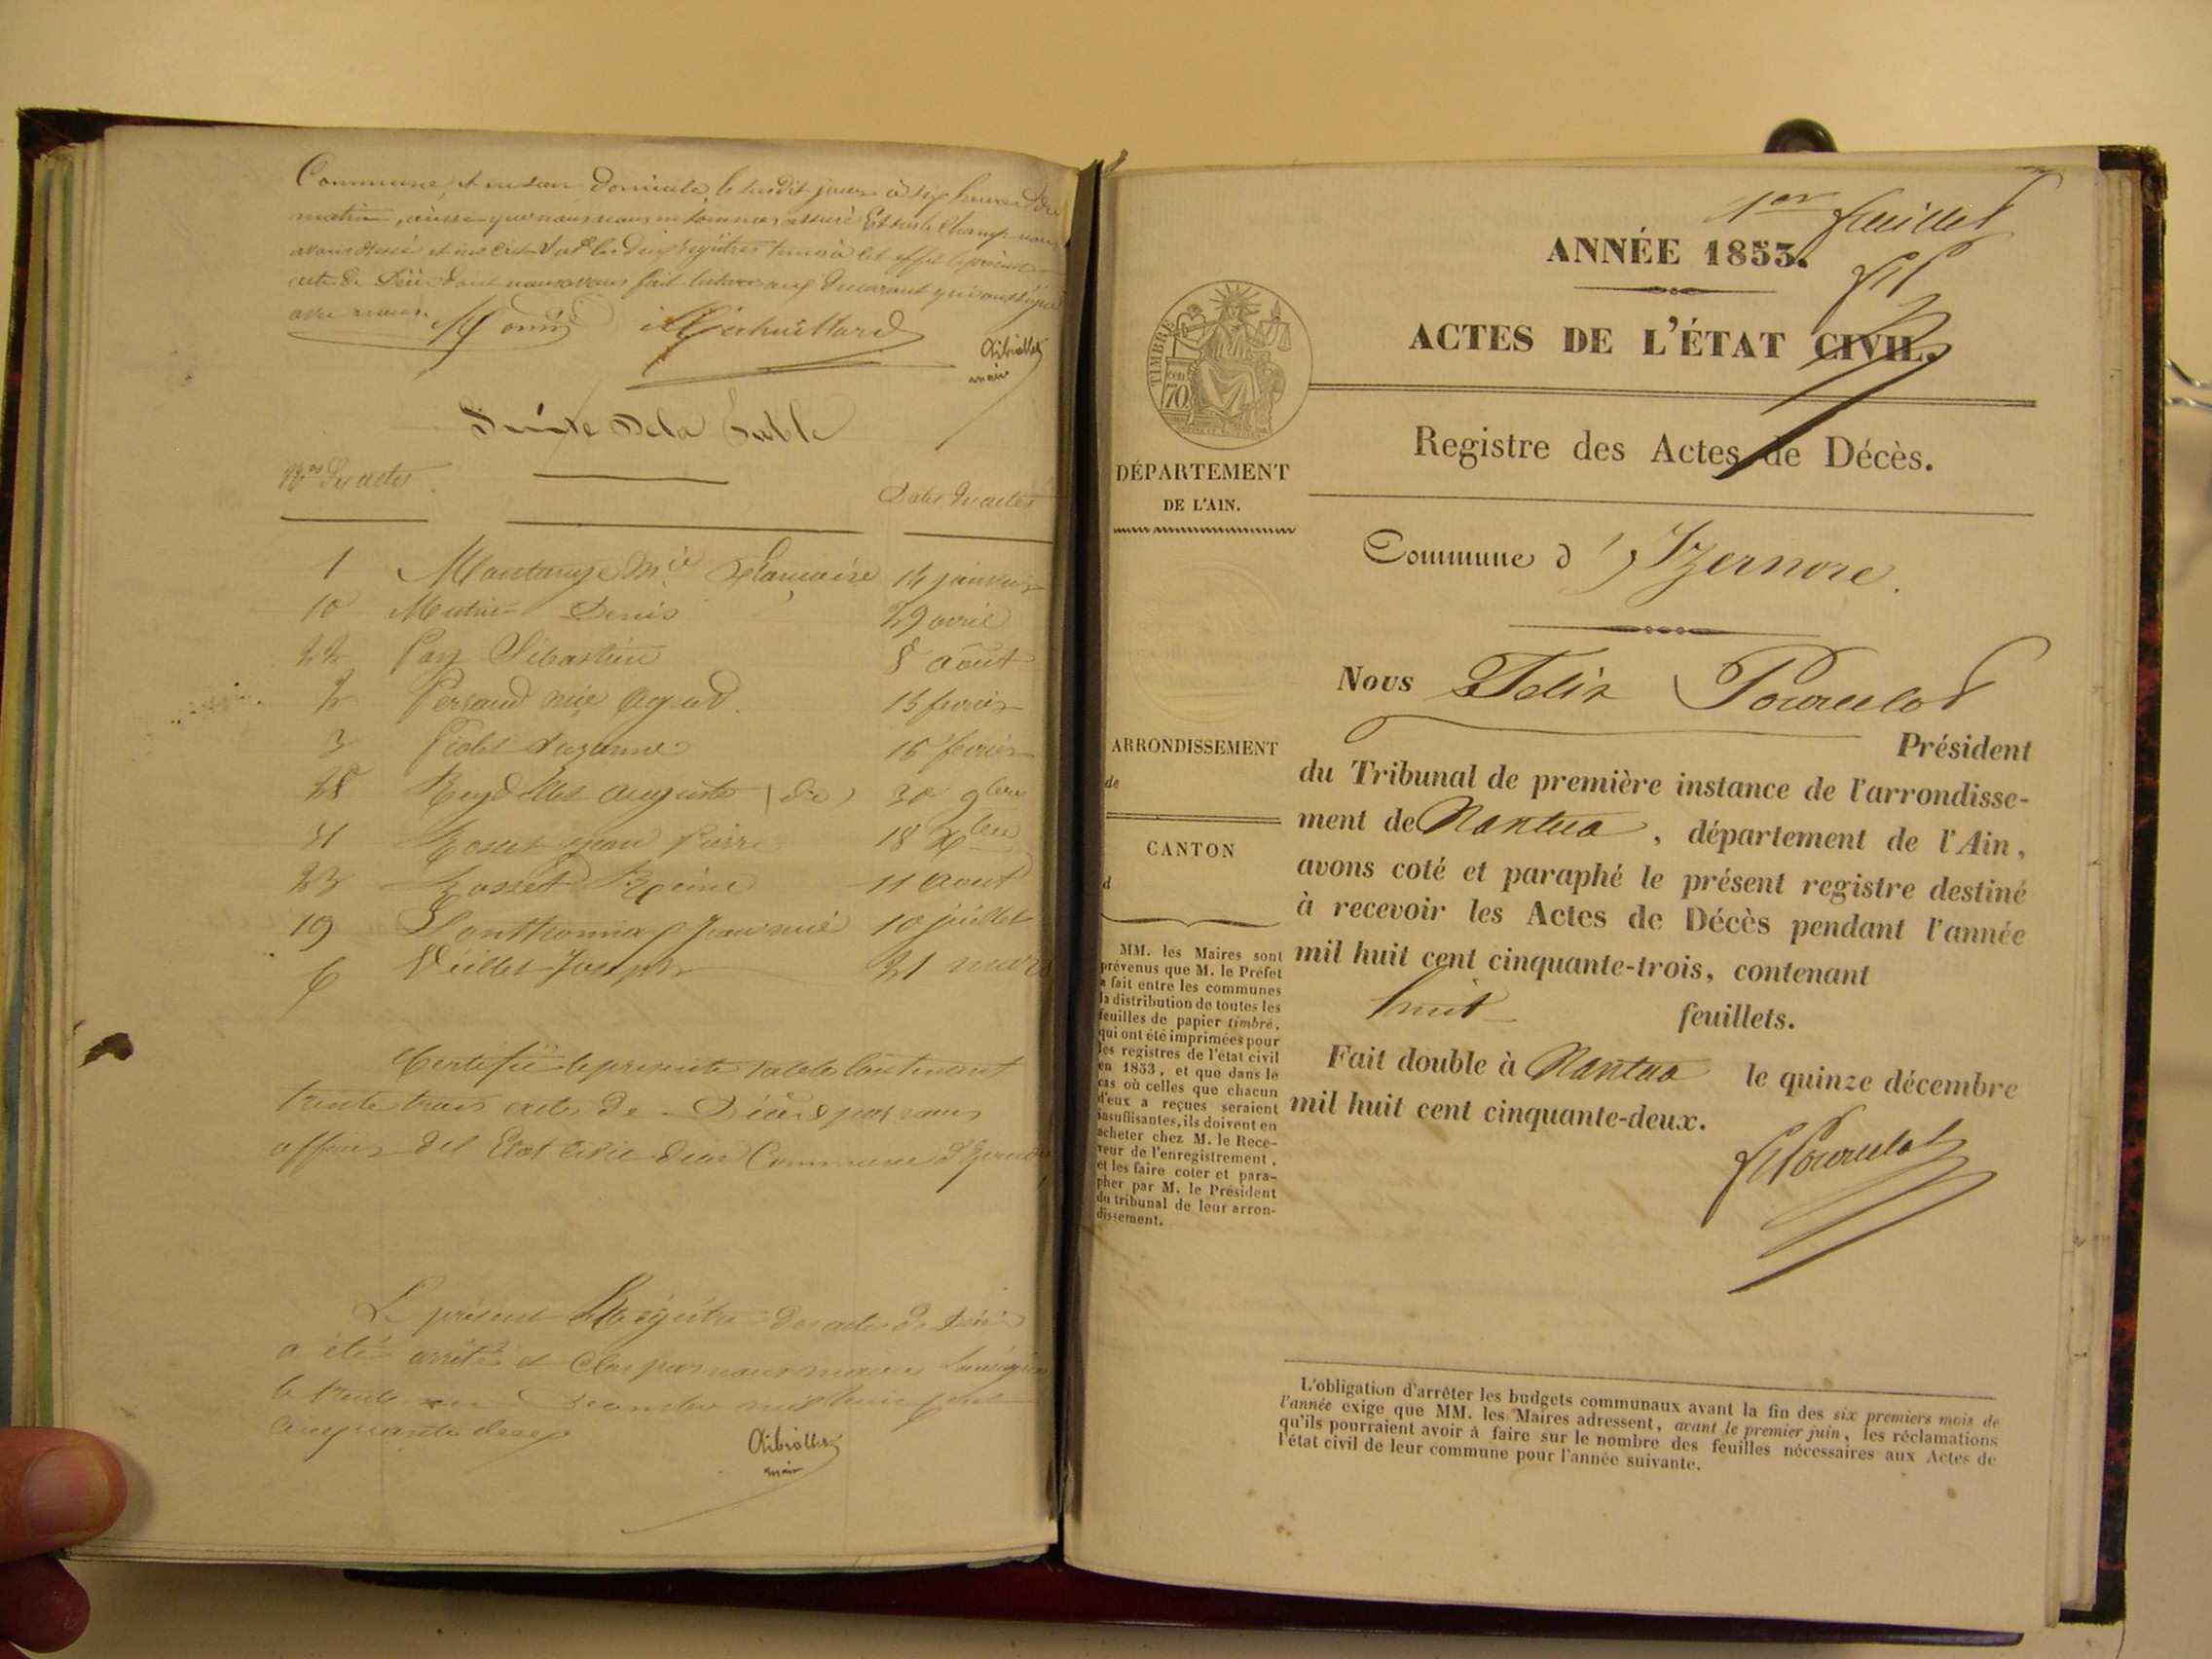 Commune, et en son domicile, le susdit jour à six heures du
matin, ainsi que nous nous en sommes assuré Et sur le champ nous
avons dressé et inscrit sur les deux registres tenus à cet effet le présent
acte de Décès dont nous avons fait lecture aux declarant qui ont signé
avec nous.
maire
Suite de la Table
Nos des actes
Dates des actes
1 Montange Mie Françoise 14 janvier
10 Mutin Denis 29 avril
22 Sébastien 8 août
2 Persaud née 15 fevrier
3 Piolet Suzanne 16 fevrier
28 Reydellet auguste (de) 30 9bre
31 Rosset jean Pierre 18 Xbre
23 Rosset Reine 11 aout
19 Sonthonnax 10 juillet
6 Veillet Joseph 31 mars
Certifié la presente table contenant
trente trois actes de Décès par nous
officier del Etat civil de la Commune d'Izernore
Le présent Registre des actes de Décès
a été arrêté et Clos par nous maire soussigné
le trente un Decembre mil huit cent
cinquante deux
maire
1er feuillet
ANNÉE 1853.
ACTES DE L'ÉTAT CIVIL.
TIMBRE
cent
70
Registre des Actes de Décès.
DÉPARTEMENT
DE L'AIN.
Commune d'Izernore.
Nous Felix Pourcelot
Président
du Tribunal de première instance de l'arrondisse-
ment de Nantua, département de l'Ain,
avons coté et paraphé le présent registre destiné
à recevoir les Actes de Décès pendant l'année
mil huit cent cinquante-trois, contenant
huit feuillets.
Fait double à Nantua le quinze décembre
mil huit cent cinquante-deux.
Pourcelot
ARRONDISSEMENT
de
CANTON
d
MM. les Maires sont
prévenus que M. le Préfet
a fait entre les communes
la distribution de toutes les
feuilles de papier timbré,
qui ont été imprimées pour
les registres de l'état civil
en 1853, et que dans le
cas où celles que chacun
d'eux a reçues seraient
insuffisantes, ils doivent en
acheter chez M. le Rece-
veur de l'enregistrement,
et les faire coter et para-
pher par M. le Président
du tribunal de leur arron-
dissement.
L'obligation d'arrêter les budgets communaux avant la fin des six premiers mois de
l'année exige que MM. les Maires adressent, avant le premier juin, les réclamations
qu'ils pourraient avoir à faire sur le nombre des feuilles nécessaires aux Actes de
l'état civil de leur commune pour l'année suivante.